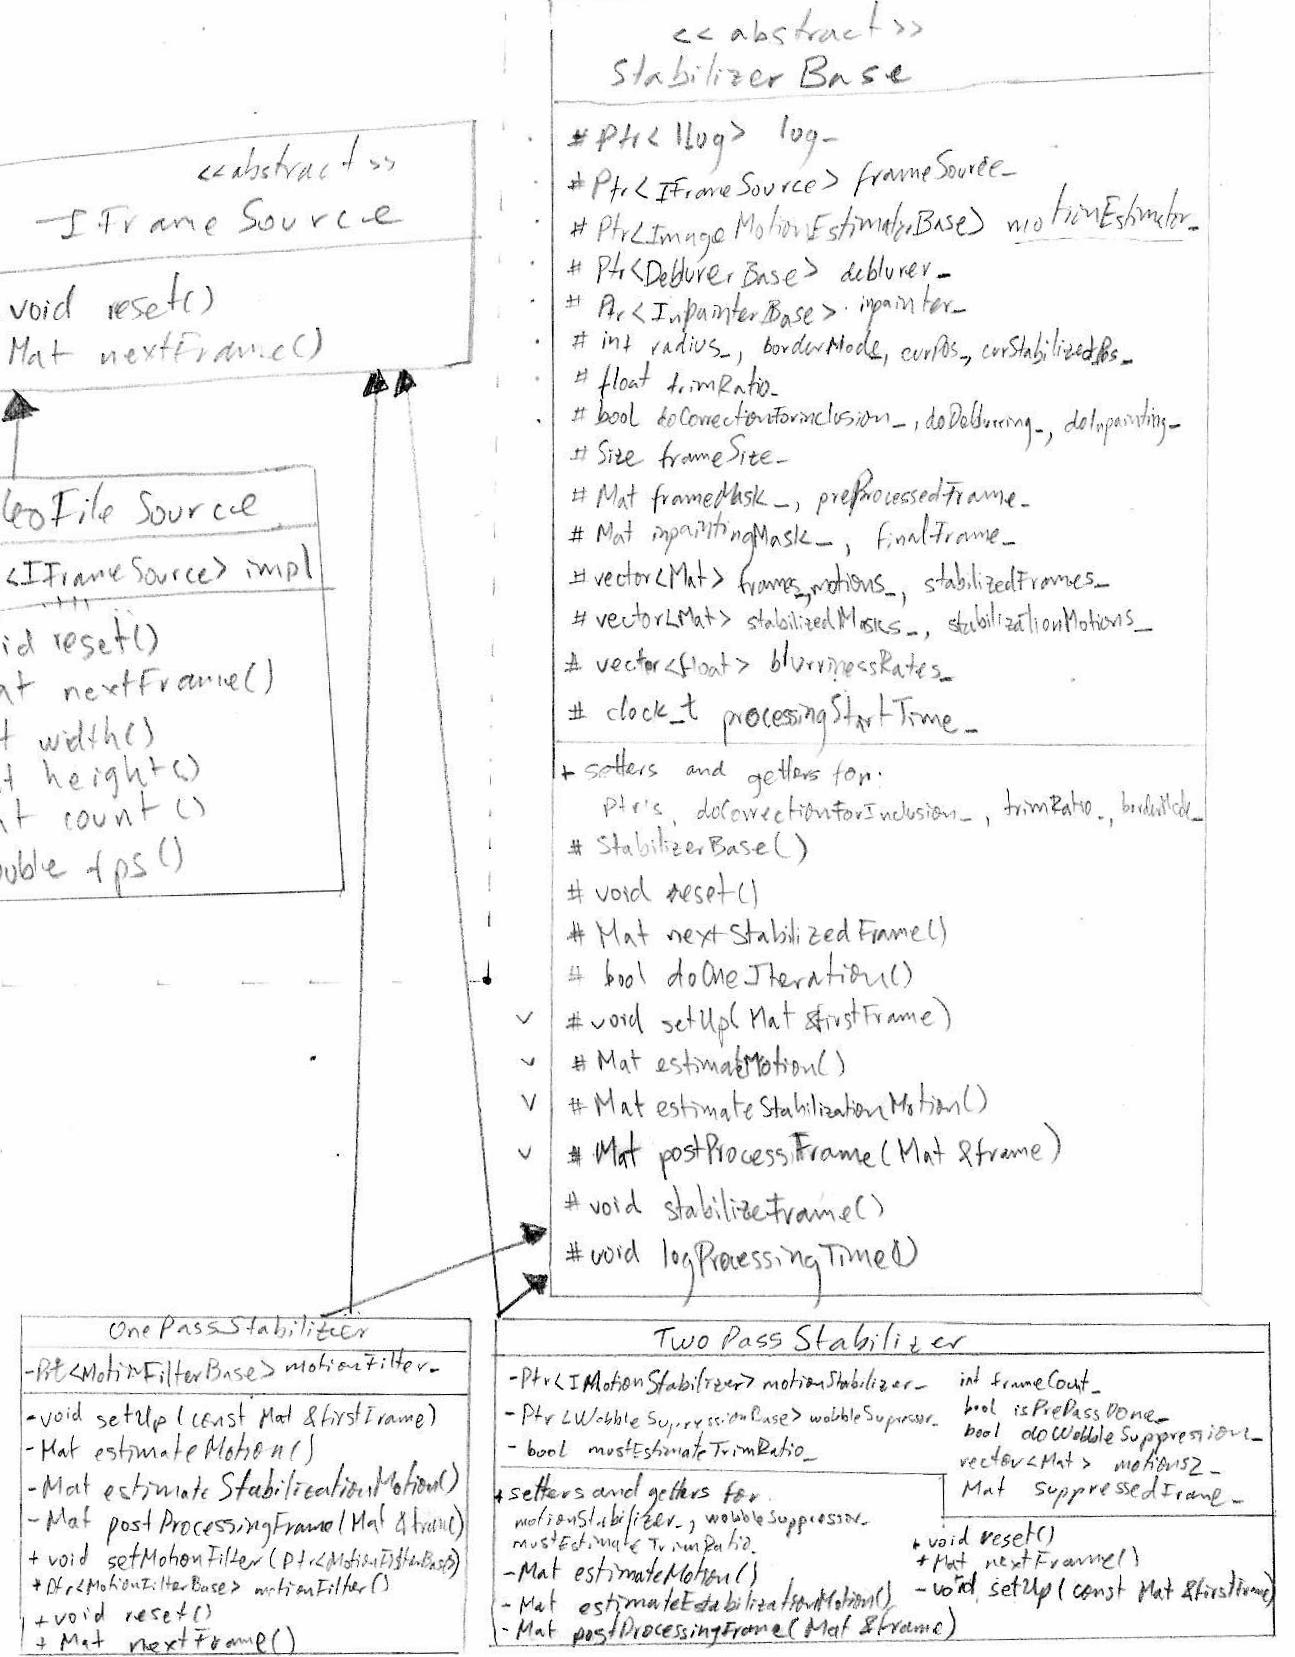 <<abstract>>
StabilizerBase
# Ptr<ILog> log_
# Ptr<IFrameSource> frameSource_
# Ptr<ImageMotionEstimatorBase> motionEstimator_
# Ptr<DeblurerBase> deblurer_
# Ptr<InpainterBase> inpainter_
# int radius_, borderMode, curPos_, curStabilizedPos_
# float trimRatio_
# bool doCorrectionForinclusion_, doDeblurring_, doInpainting_
# Size frameSize_
# Mat frameMask_, preProcessedFrame_
# Mat inpaintingMask_, finalFrame_
# vector<Mat> frames_, motions_, stabilizedFrames_
# vector<Mat> stabilizedMasks_, stabilizationMotions_
# vector<float> blurrinessRates_
# clock_t processingStartTime_
+ setters and getters for:
Ptr's, doCorrectionForInclusion_, trimRatio_, borderMode_
# StabilizerBase()
# void reset()
# Mat nextStabilizedFrame()
# bool doOneIteration()
# void setUp(Mat &firstFrame)
# Mat estimateMotion()
# Mat estimateStabilizationMotion()
# Mat postProcessFrame(Mat &frame)
# void stabilizeFrame()
# void logProcessingTime()
<<abstract>>
IFrameSource
void reset()
Mat nextFrame()
deoFileSource
<IFrameSource> impl
id reset()
at nextFrame()
t width()
t height()
nt count()
ouble fps()
OnePassStabilizer
-Prt<MotionFilterBase> motionFilter_
-void setUp(const Mat &firstFrame)
-Mat estimateMotion()
-Mat estimateStabilizationMotion()
-Mat postProcessingFrame(Mat &frame)
+ void setMotionFilter(Ptr<MotionFilterBase>)
+ Ptr<MotionFilterBase> motionFilter()
+ void reset()
+ Mat nextFrame()
TwoPassStabilizer
-Ptr<IMotionStabilizer> motionStabilizer_
-Ptr<WobbleSuppressionBase> wobbleSupressor_
- bool mustEstimateTrimRatio_
int frameCount_
bool isPrePassDone_
bool doWobbleSuppression_
vector<Mat> motions2_
Mat suppressedFrame_
+ setters and getters for
motionStabilizer_, wobbleSuppressor_
mustEstimateTrimRatio_
- Mat estimateMotion()
- Mat estimateEstabilizationMotion()
- Mat postProcessingFrame(Mat &frame)
+ void reset()
+ Mat nextFrame()
- void setUp(const Mat &firstFrame)